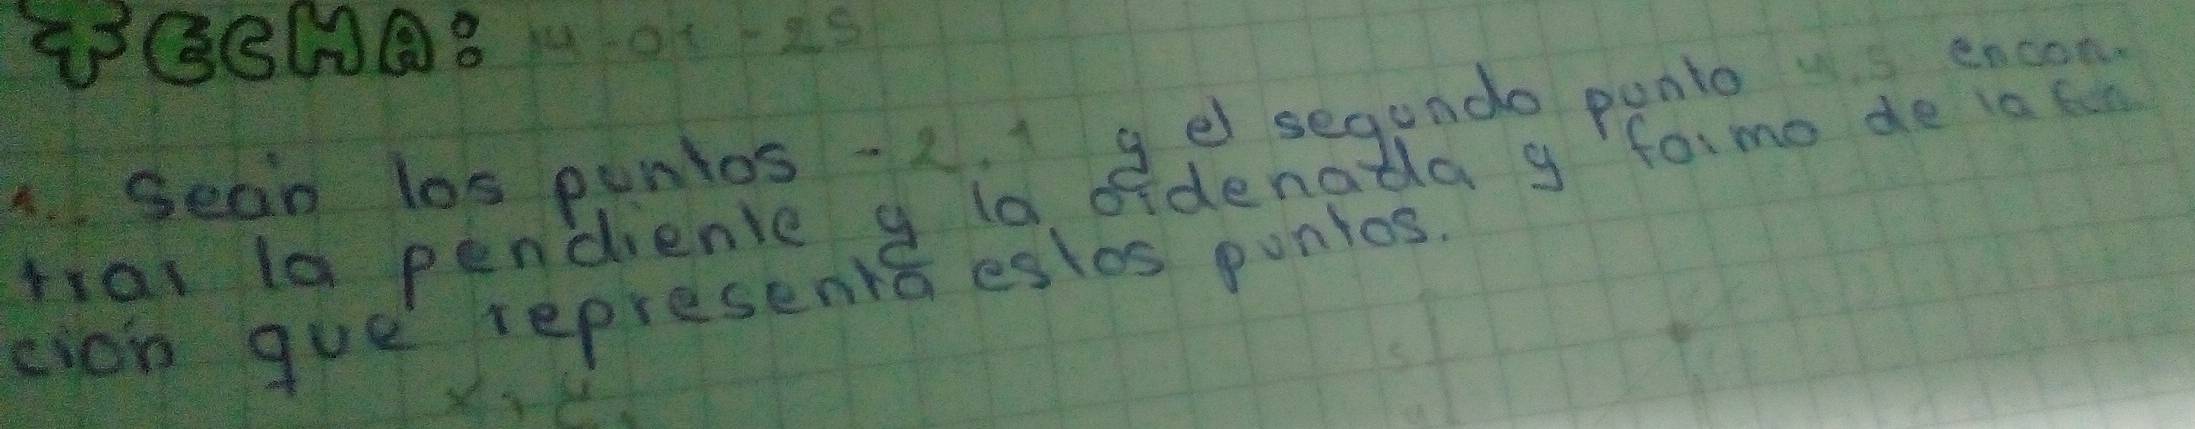 FECHA: 14-01-25
1.. Sean los puntos -2.1 y el segundo punto 4.5 encon-
trar la pendiente y la ordenada y formo de la fun
cion que representa estos puntos.
x, y